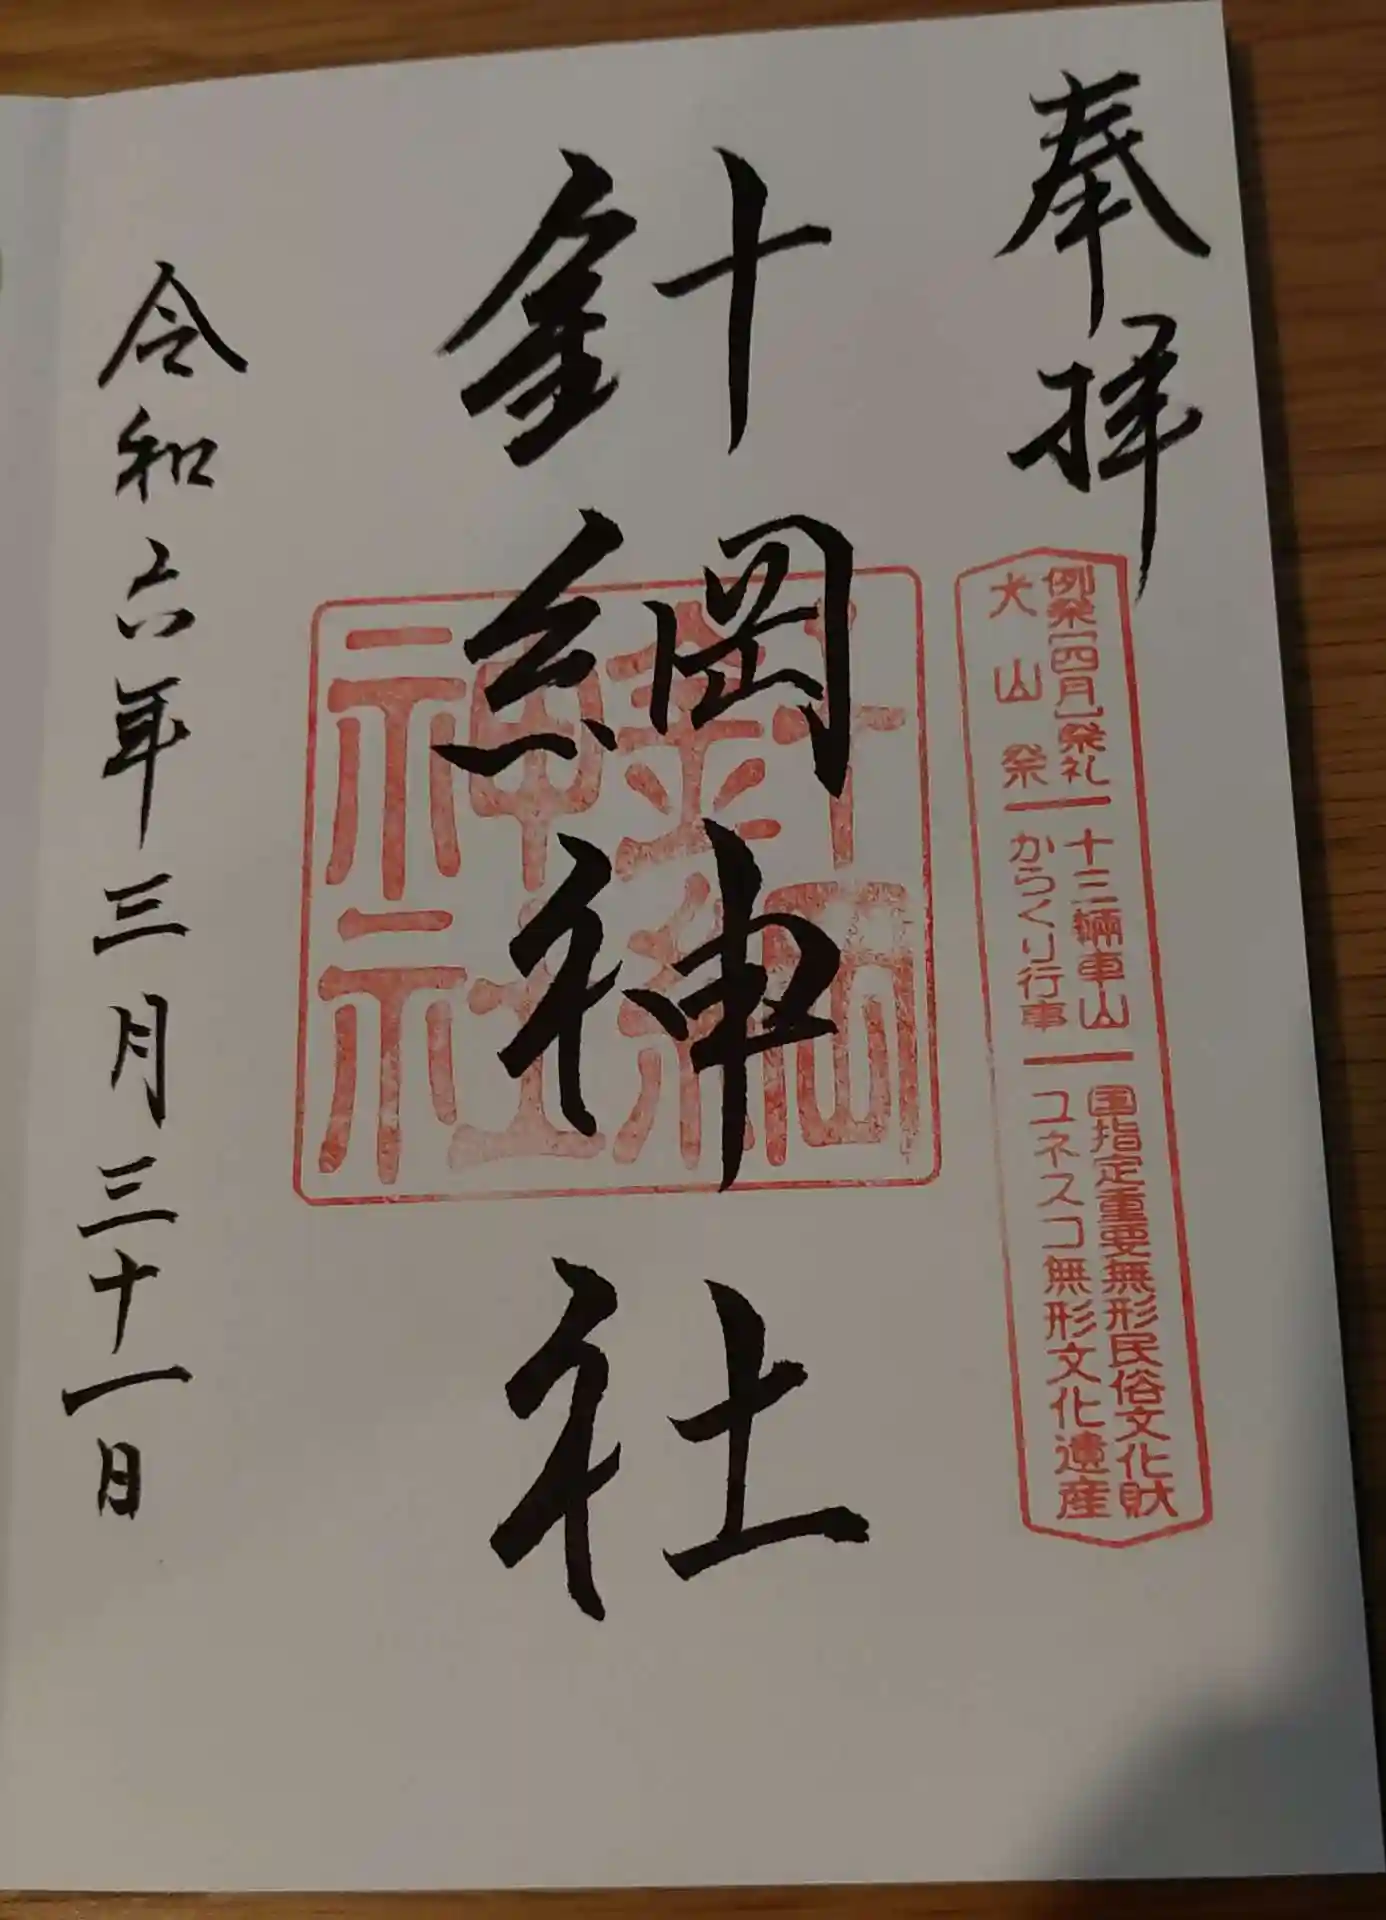 奉拝
例祭[四月]祭礼 十三輛車山 国指定重要無形民俗文化財
犬山祭 からくり行事 ユネスコ無形文化遺産
針綱神社
針綱
神社
令和六年三月三十一日